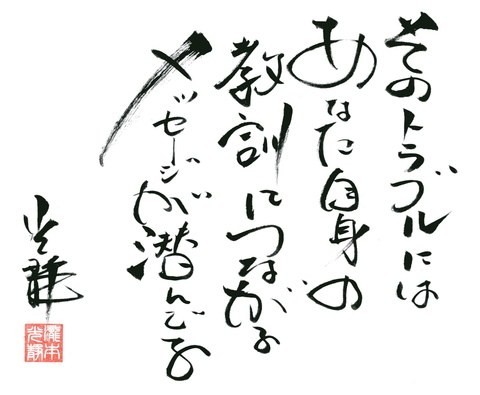 そのトラブルには
あなた自身の
教訓につながる
メッセージが潜んでる
光龍